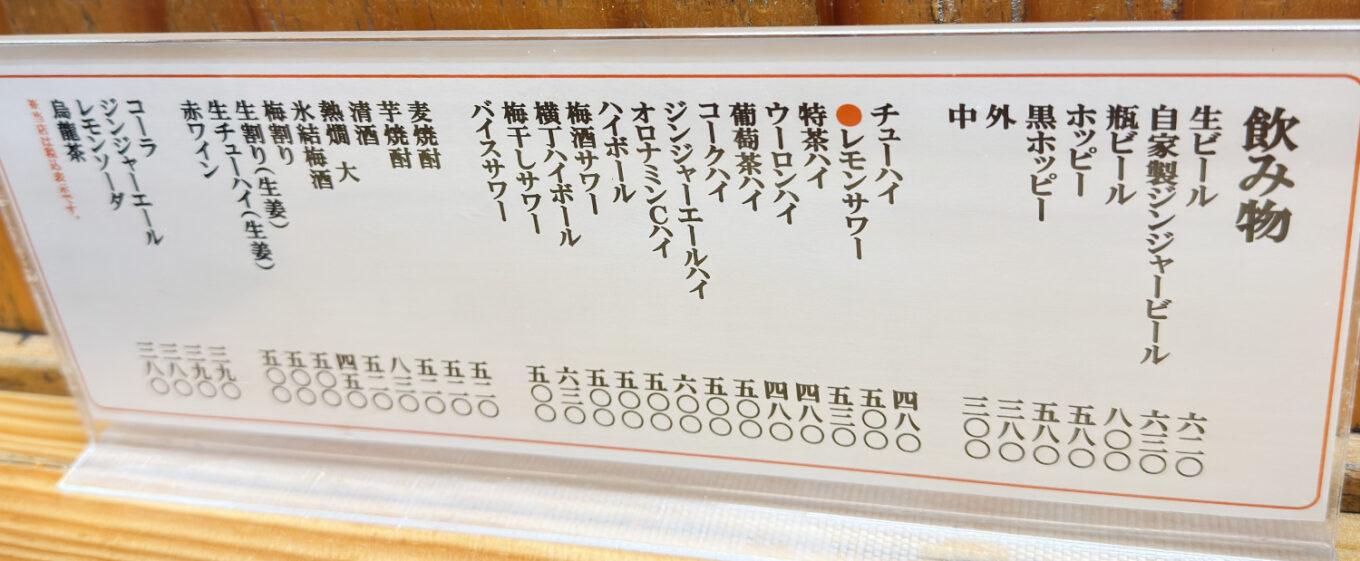 飲み物
生ビール 六二〇
自家製ジンジャービール 六三〇
瓶ビール 八〇〇
ホッピー 五八〇
黒ホッピー 五八〇
外 三八〇
中 三〇〇
チューハイ 四八〇
●レモンサワー 五〇〇
特茶ハイ 五三〇
ウーロンハイ 四八〇
葡萄茶ハイ 四八〇
コークハイ 五〇〇
ジンジャーエールハイ 五〇〇
オロナミンCハイ 六〇〇
ハイボール 五〇〇
梅酒サワー 五〇〇
横丁ハイボール 五〇〇
梅干しサワー 六三〇
バイスサワー 五〇〇
麦焼酎 五二〇
芋焼酎 五二〇
清酒 五二〇
熱燗 大 八三〇
氷結梅酒 五二〇
梅割り 四五〇
生割り(生姜) 五〇〇
生チューハイ(生姜) 五〇〇
赤ワイン 五〇〇
コーラ 三九〇
ジンジャーエール 三九〇
レモンソーダ 三八〇
烏龍茶 三八〇
※当店は税込表示です。